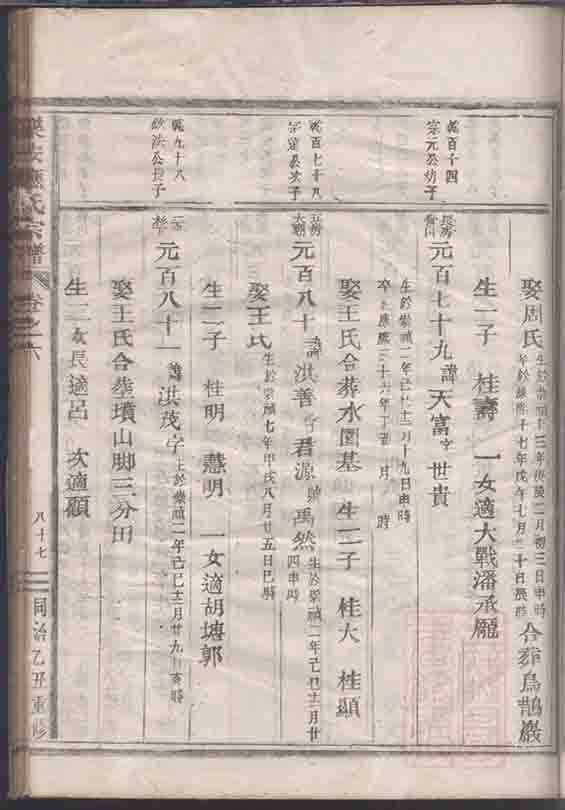 娶周氏生於崇禎十三年庚辰二月初三日申時卒於康熙五十七年戊戌七月二十日辰時合葬烏鵲巖
生一子 桂壽 一女適大戰潘承龐
乾百十四
宗元公幼子
長房
元百七十九諱天富字世貴
生於崇禎二年己巳十二月十九日申時
卒於康熙三十六年丁丑 月 時
娶王氏合葬水圳墓 生二子 桂大 桂顯
乾百七十八
宗道公次子
元百八十諱洪善字君源號禹然生於崇禎二年己巳十二月廿四申時
娶王氏生於崇禎七年甲戌八月廿五日巳時
生二子 桂明 慧明 一女適胡塘郭
乾九十八
欽洪公長子
元百八十一諱洪茂字 生於崇禎二年己巳十二月廿九 亥時
娶王氏合塟墳山脚三分田
生二女長適呂 次適顧
氏宗譜 卷之六
八十七
同治乙丑重修